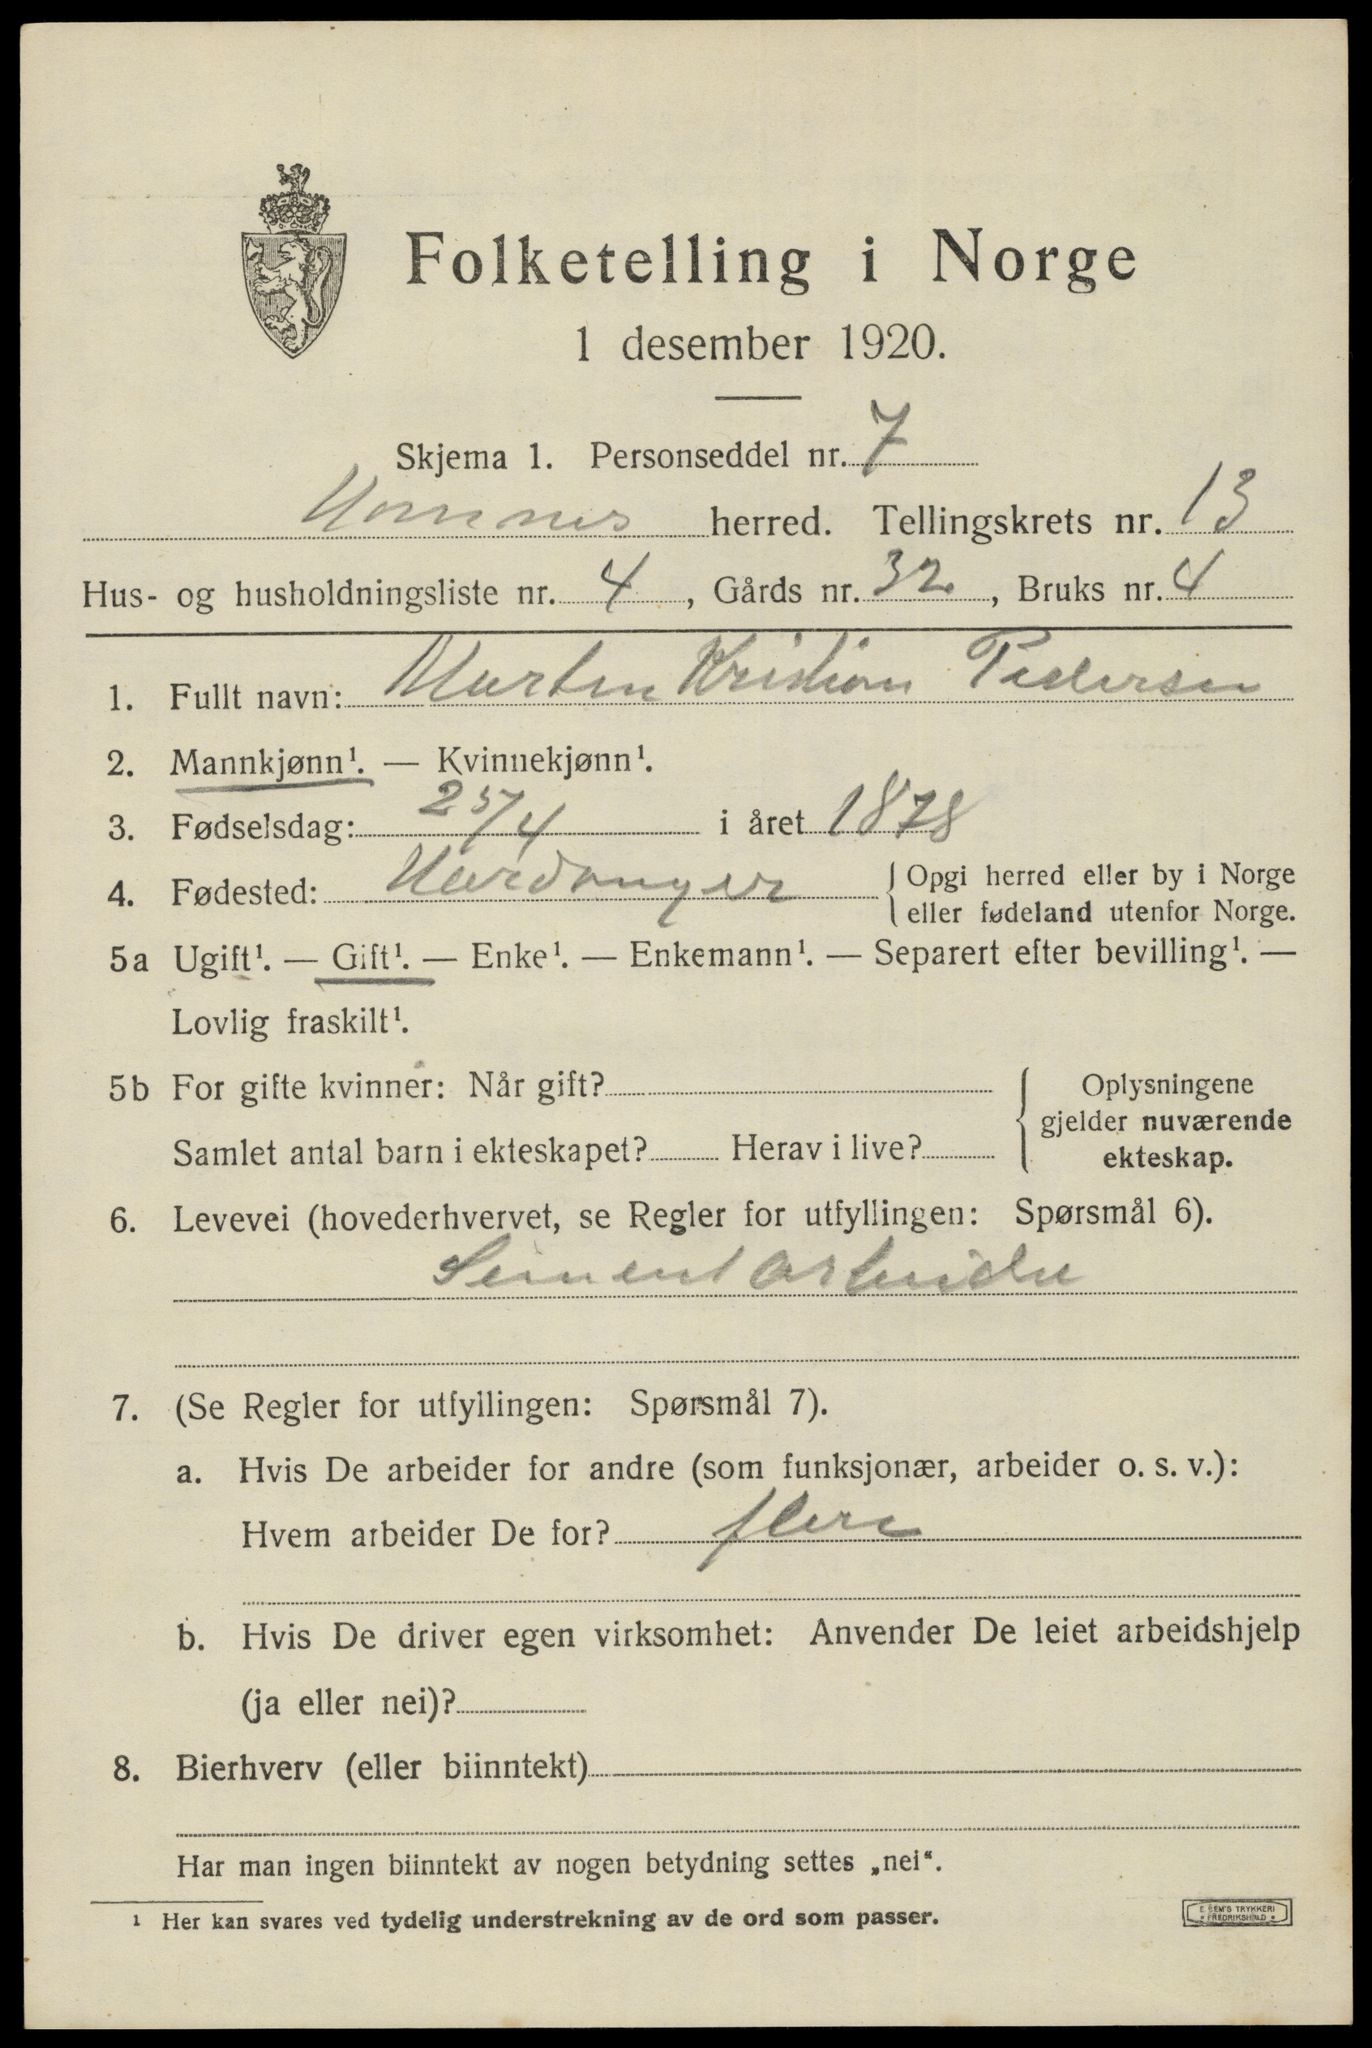 Folketelling i Norge
1 desember 1920.
Skjema 1. Personseddel nr. 7
herred. Tellingskrets nr. 13
Hus- og husholdningsliste nr. 4, Gårds nr. 32, Bruks nr. 4
1. Fullt navn: Martin Kristian Pedersen
2. Mannkjønn¹. — Kvinnekjønn¹.
3. Fødselsdag: 25/4 i året 1878
4. Fødested: Hardanger { Opgi herred eller by i Norge
eller fødeland utenfor Norge.
5a Ugift¹. — Gift¹. — Enke¹. — Enkemann¹. — Separert efter bevilling¹. —
Lovlig fraskilt¹.
5b For gifte kvinner: Når gift? { Oplysningene
gjelder nuværende
Samlet antal barn i ekteskapet? Herav i live? ekteskap.
6. Levevei (hovederhvervet, se Regler for utfyllingen: Spørsmål 6).
Sement arbeider
7. (Se Regler for utfyllingen: Spørsmål 7).
a. Hvis De arbeider for andre (som funksjonær, arbeider o. s. v.):
Hvem arbeider De for? flere
b. Hvis De driver egen virksomhet: Anvender De leiet arbeidshjelp
(ja eller nei)?
8. Bierhverv (eller biinntekt)
Har man ingen biinntekt av nogen betydning settes „nei“.
¹ Her kan svares ved tydelig understrekning av de ord som passer.
E. SEM'S TRYKKERI
* FREDRIKSHALD *